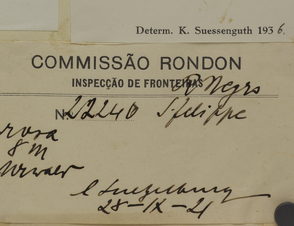 Determ. K. Suessenguth 1936.
COMMISSÃO RONDON
INSPECÇÃO DE FRONTEIRAS
R. Negro
N. 22240 S. felippe
rosa
8 m
28-IX-21